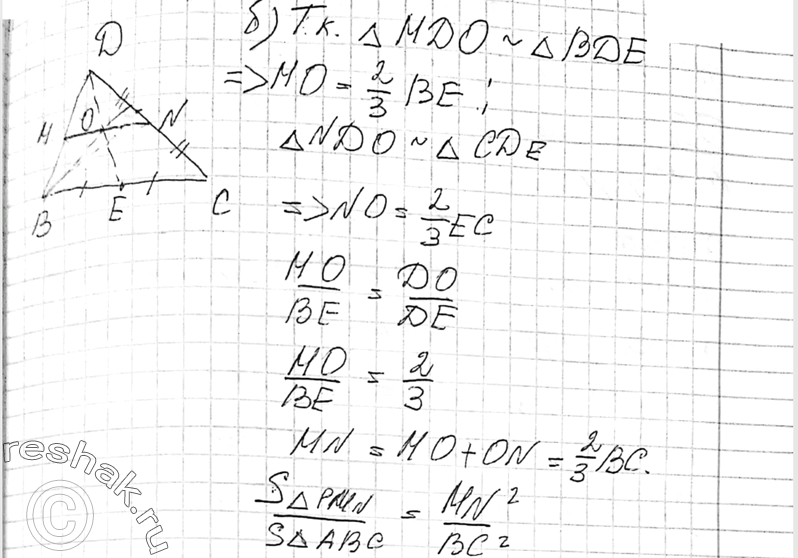 б) Т.к. △ MDO ~ △ BDE
=> MO = 2/3 BE ;
△ NDO ~ △ CDE
=> NO = 2/3 EC
MO/BE = DO/DE
MO/BE = 2/3
MN = MO + ON = 2/3 BC.
S△PMN/S△ABC = MN²/BC²
D
M O N
B E C
reshak.ru
©